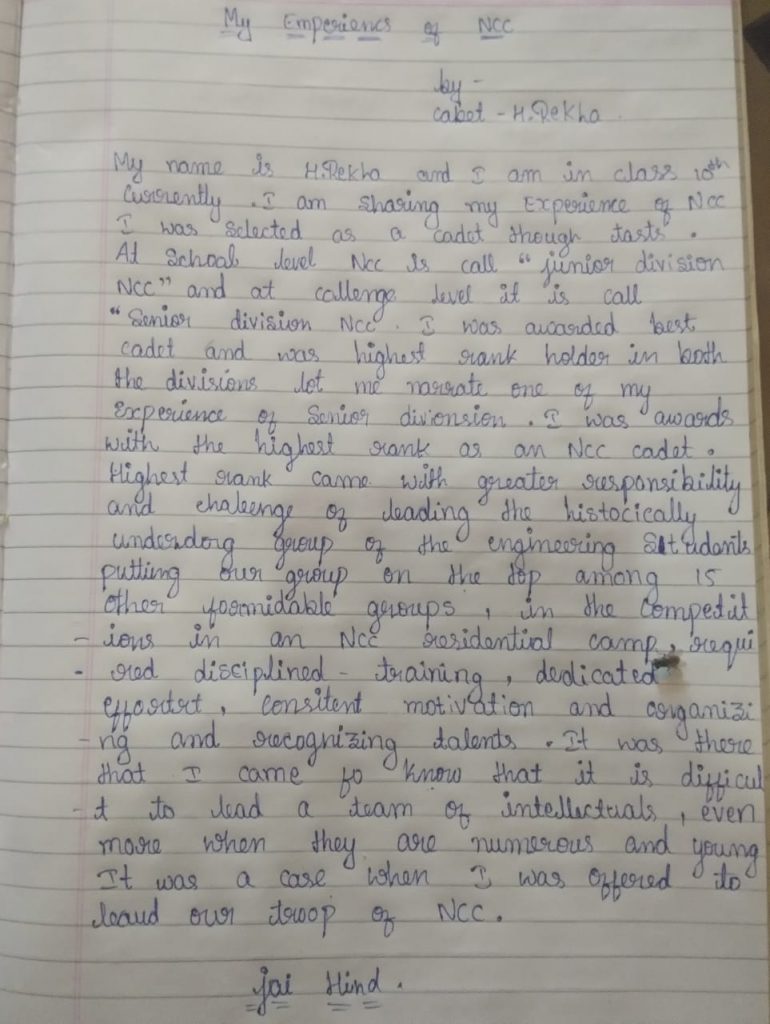 My Emperiencs of NCC
by -
cabet - H.Rekha
My name is H.Rekha and I am in class 10th
Currently . I am sharing my Experience of NCC
I was selected as a cadet though tasts .
At School level Ncc is call "junior division
NCC" and at callenge level it is call
"Senior division NCC . I was awarded best
cadet and was highest rank holder in both
the divisions let me narrate one of my
Experience of Senior divionsion . I was awards
with the highest rank as an NCC cadet .
Highest rank came with greater responsibility
and chaleenge of leading the histocically
underdorg group of the engineering Students
putting our group on the top among 15
other formidable groups , in the Competit
- ions in an NCC residential camp , requi
- red disciplined - training , dedicated
effortrt , consitent motivation and organizi
- ng and recognizing talents . It was there
that I came to know that it is difficul
- t to lead a team of intellectuals , even
more when they are numerous and young
It was a case when I was offered to
leaud our troop of NCC .
Jai Hind .